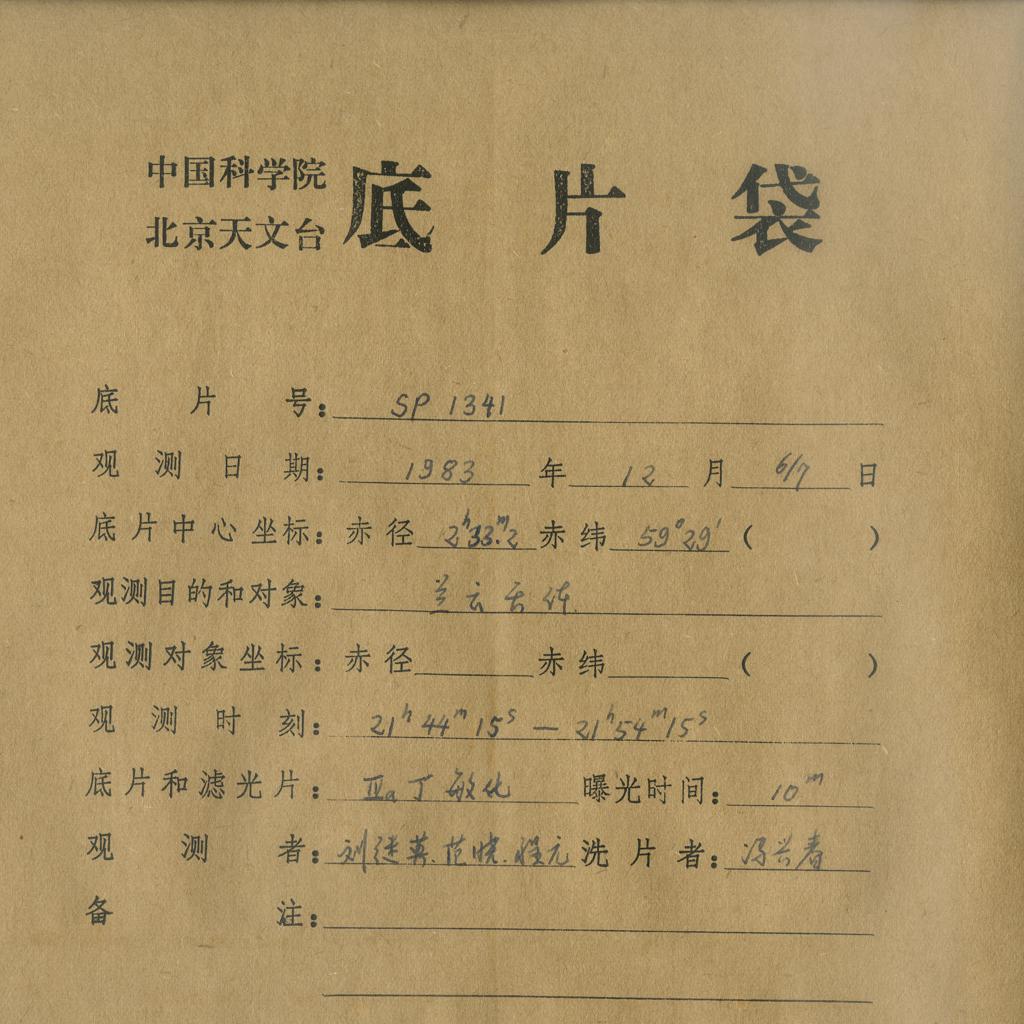 中国科学院
北京天文台
底片袋
底片号：SP 1341
观测日期：1983年12月6/7日
底片中心坐标：赤径 2ʰ33ᵐ.2 赤纬 59°29′（ ）
观测目的和对象：兰云
观测对象坐标：赤径 赤纬 （ ）
观测时刻：21ʰ44ᵐ15ˢ — 21ʰ54ᵐ15ˢ
底片和滤光片：Ⅱa 丁 敏化 曝光时间：10ᵐ
观测者：刘 英.范晓.程元 洗片者：冯兴春
备注：